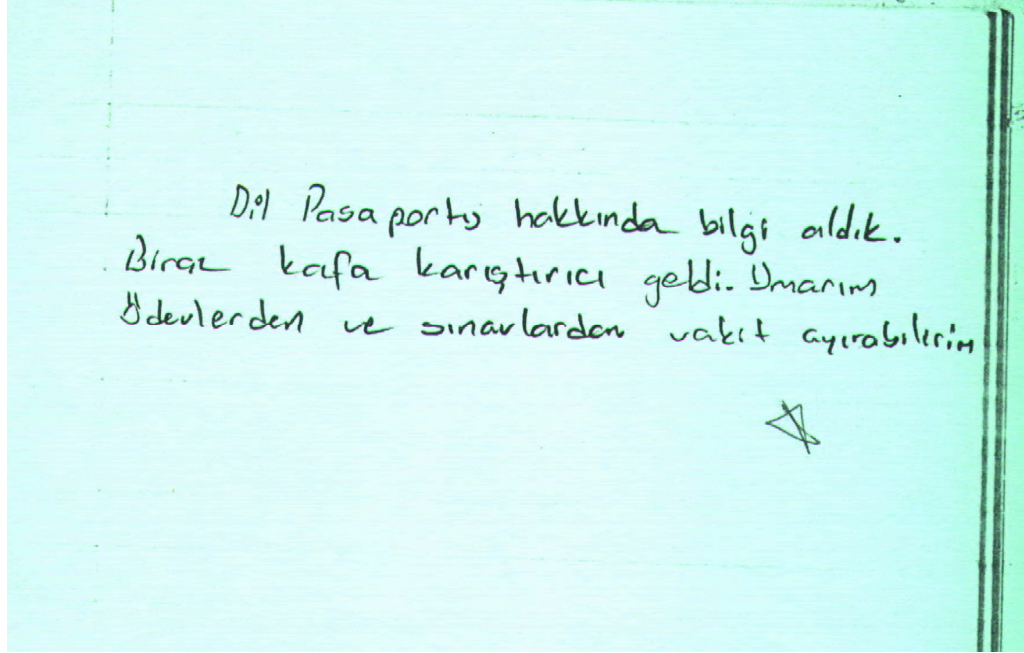 Dil Pasaportu hakkında bilgi aldık.
Biraz kafa karıştırıcı geldi. Umarım
Ödevlerden ve sınavlardan vakit ayırabilirim